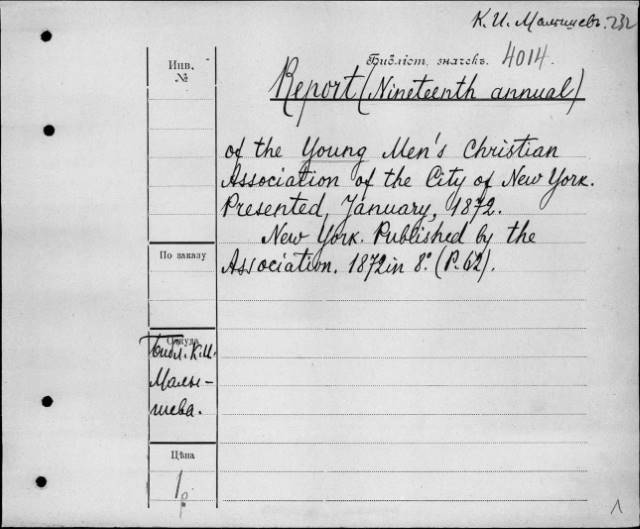 К. И. Малышевъ. 232
Библіот. значекъ. 4014.
Инв.
№
Report (Nineteenth annual)
of the Young Men's Christian
Association of the City of New York.
Presented, January, 1872.
New York. Published by the
Association. 1872 in 8º. (P. 62).
По заказу
Откуда
Библ. К.И.
Малы-
шева.
Цѣна
1 р